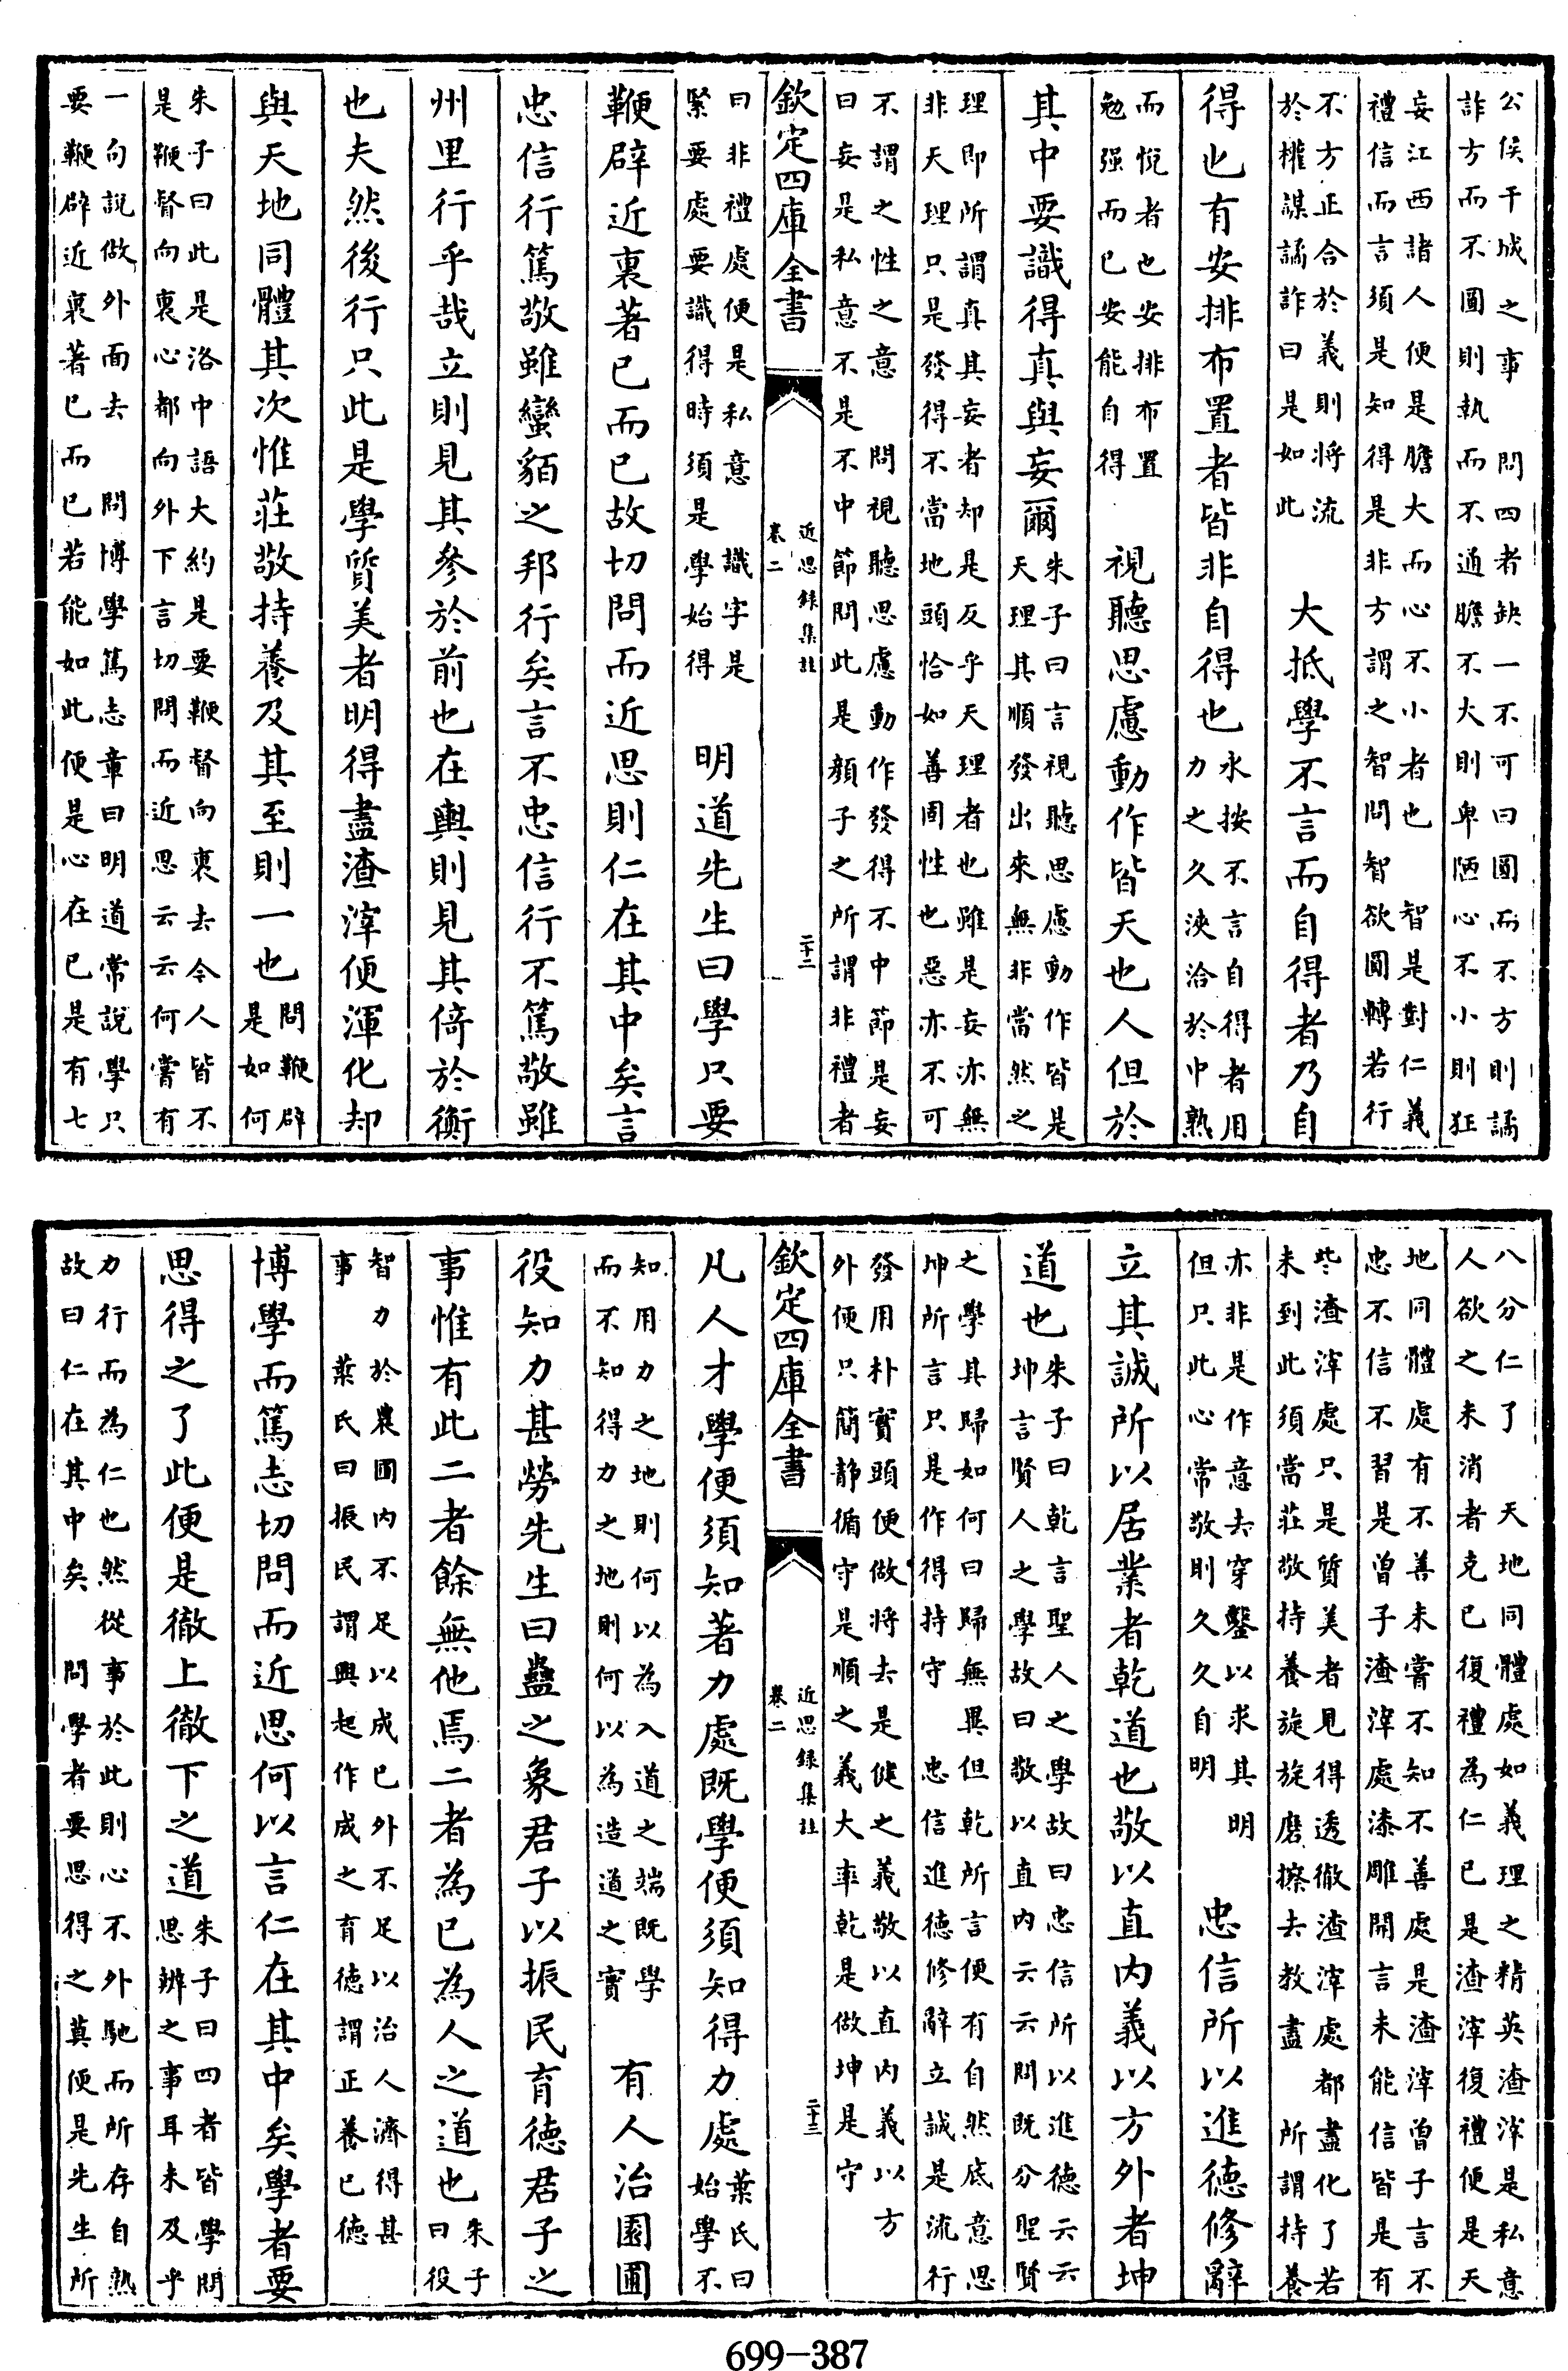 公侯干城之事　問四者缺一不可曰圓而不方則譎
詐方而不圓則執而不通膽不大則卑陋心不小則狂
妄江西諸人便是膽大而心不小者也　智是對仁義
禮信而言須是知得是非方謂之智問智欲圓轉若行
不方正合於義則將流
於權謀譎詐曰是如此
大抵學不言而自得者乃自
得也有安排布置者皆非自得也
永按不言自得者用
力之久浹洽於中熟
而悅者也安排布置
勉强而已安能自得
視聽思慮動作皆天也人但於
其中要識得真與妄爾
朱子曰言視聽思慮動作皆是
天理其順發出來無非當然之
理即所謂真其妄者却是反乎天理者也雖是妄亦無
非天理只是發得不當地頭恰如善固性也惡亦不可
不謂之性之意　問視聽思慮動作發得不中節是妄
曰妄是私意不是不中節問此是顔子之所謂非禮者
欽定四庫全書
近思錄集註
卷二
二十二
曰非禮處便是私意　識字是
緊要處要識得時須是學始得
明道先生曰學只要
鞭辟近裏著己而已故切問而近思則仁在其中矣言
忠信行篤敬雖蠻貊之邦行矣言不忠信行不篤敬雖
州里行乎哉立則見其參於前也在輿則見其倚於衡
也夫然後行只此是學質美者明得盡渣滓便渾化却
與天地同體其次惟莊敬持養及其至則一也
問鞭辟
是如何
朱子曰此是洛中語大約是要鞭督向裏去令人皆不
是鞭督向裏心都向外下言切問而近思云云何嘗有
一句說做外面去　問博學篤志章曰明道常說學只
要鞭辟近裏著已而已若能如此便是心在已是有七
八分仁了　天地同體處如義理之精英渣滓是私意
人欲之未消者克已復禮為仁已是渣滓復禮便是天
地同體處有不善未嘗不知不善處是渣滓曾子言不
忠不信不習是曾子渣滓處漆雕開言未能信皆是有
些渣滓處只是質美者見得透徹渣滓處都盡化了若
未到此須當莊敬持養旋旋磨擦去教盡　所謂持養
亦非是作意去穿鑿以求其明
但只此心常敬則久久自明
忠信所以進德修辭
立其誠所以居業者乾道也敬以直內義以方外者坤
道也
朱子曰乾言聖人之學故曰忠信所以進德云云
坤言賢人之學故曰敬以直內云云問既分聖賢
之學其歸如何曰歸無異但乾所言便有自然底意思
坤所言只是作得持守　忠信進德修辭立誠是流行
發用朴實頭便做將去是健之義敬以直內義以方
外便只簡静循守是順之義大率乾是做坤是守
欽定四庫全書
近思錄集註
卷二
二十三
凡人才學便須知著力處既學便須知得力處
葉氏曰
始學不
知用力之地則何以為入道之端既學
而不知得力之地則何以為造道之實
有人治園圃
役知力甚勞先生曰蠱之象君子以振民育德君子之
事惟有此二者餘無他焉二者為已為人之道也
朱子
曰役
智力於農圃内不足以成已外不足以治人濟得甚
事　葉氏曰振民謂興起作成之育德謂正養已德
博學而篤志切問而近思何以言仁在其中矣學者要
思得之了此便是徹上徹下之道
朱子曰四者皆學問
思辨之事耳未及乎
力行而為仁也然從事於此則心不外馳而所存自熟
故曰仁在其中矣　問學者要思得之莫便是先生所
699-387